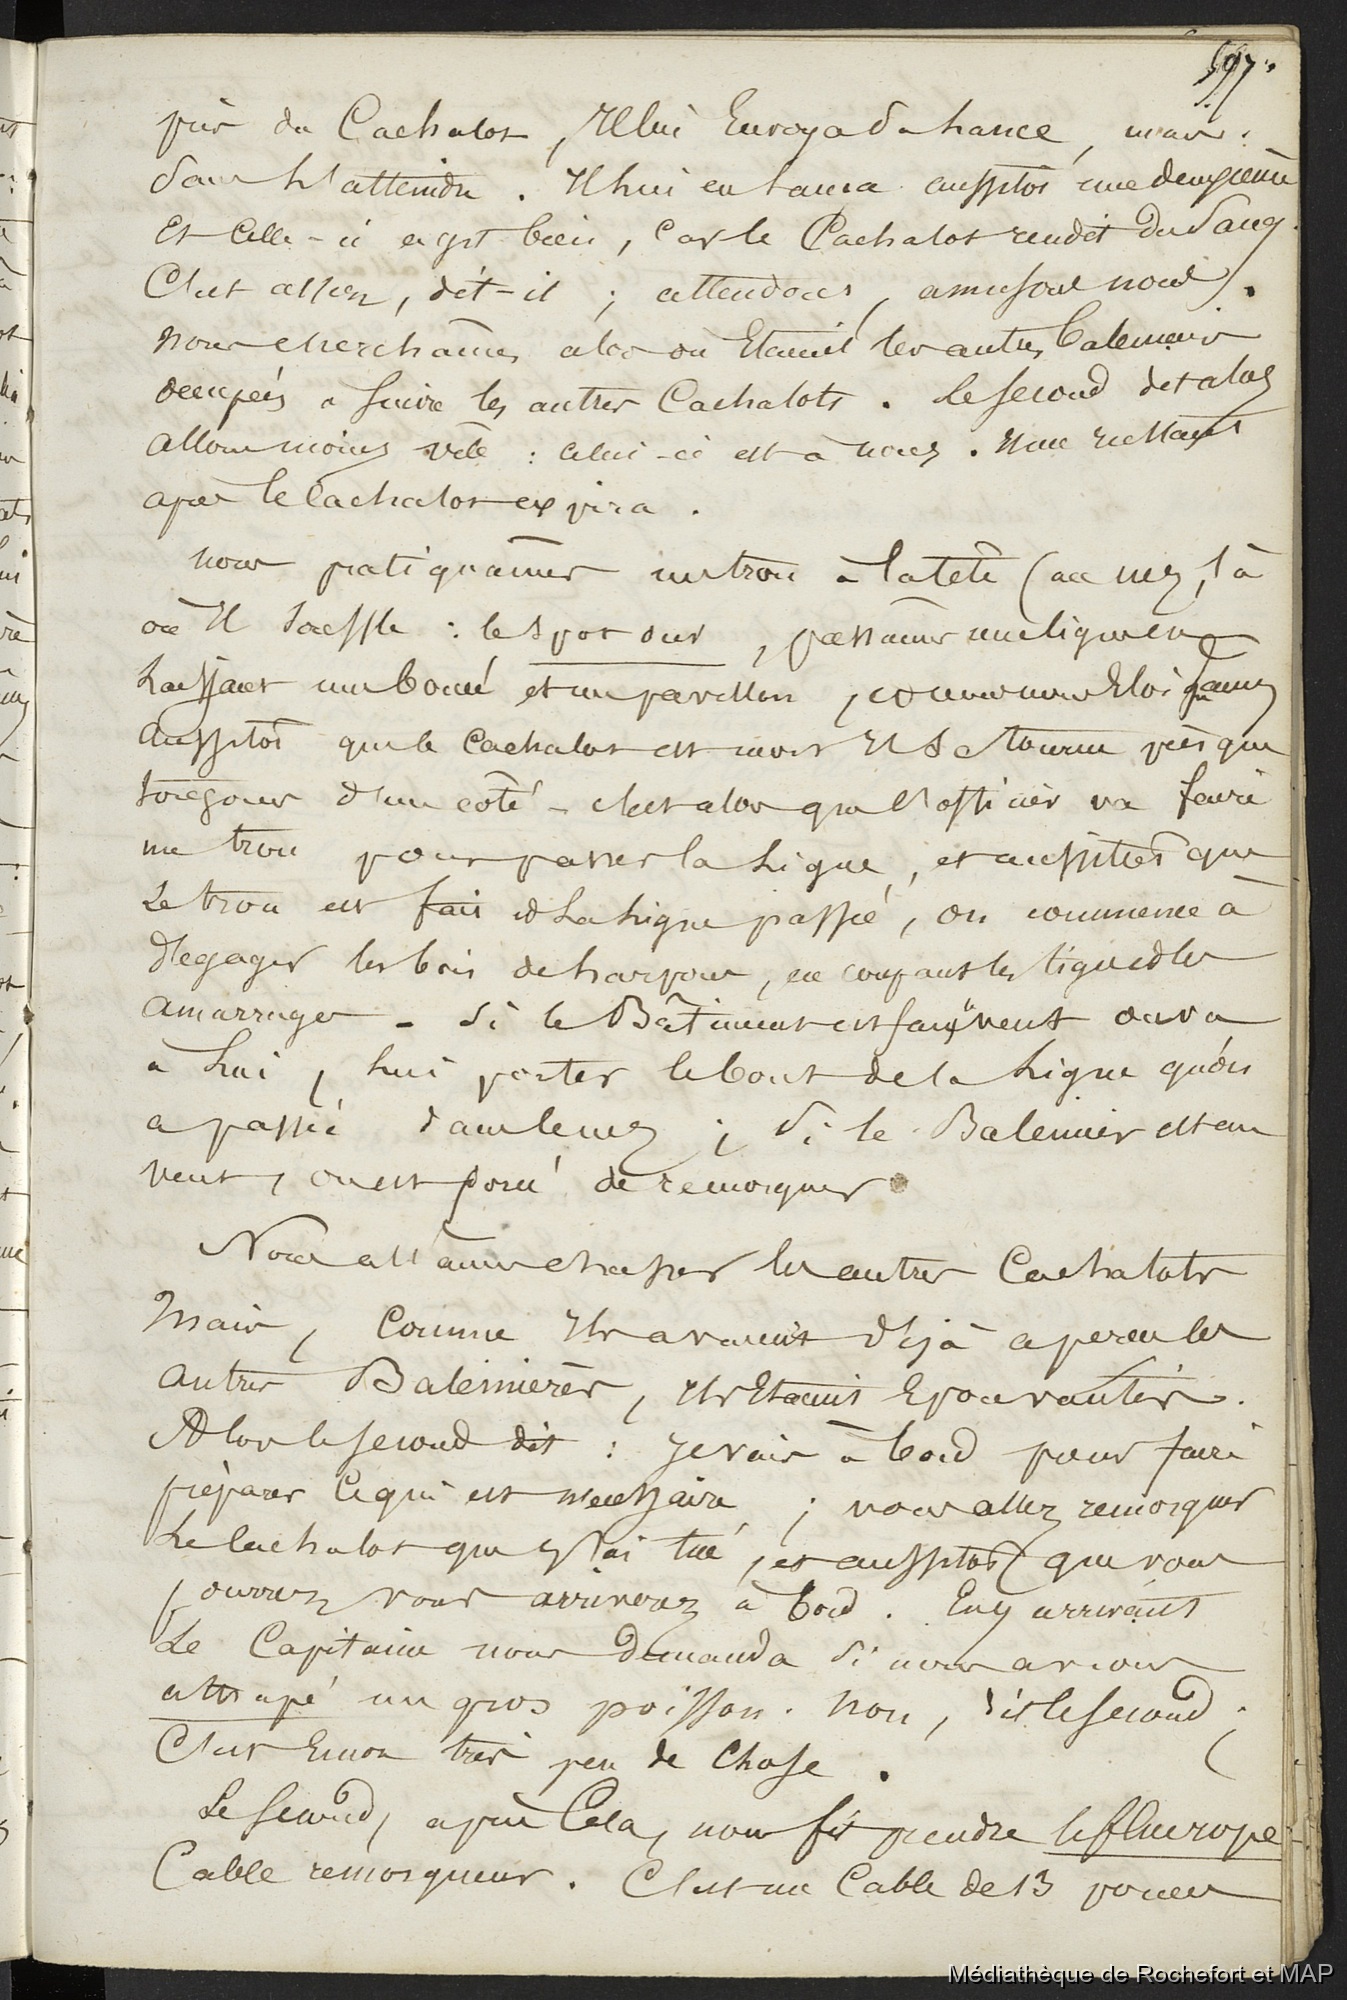 597.
près du Cachalot, Il lui Envoya Sa Lance, mais
Sans L'atteindre. Il lui en Lança aussitôt une deuxième
Et Celle-ci agit bien, Car le Cachalot rendit du Sang.
C'est assez, dit-il ; attendons, amusons nous.
Nous cherchâmes alors où Etaient les autres baleiniers
occupées à Suivre les autres Cachalots. Le Second dit alors
allons moins vite : celui-ci est à nous. Une
après le Cachalot expira.
Nous pratiquâmes un trou à la tête (au nez, là
où Il Souffle : le Spot our, passâmes une ligne en
Laissant une bouée et un pavillon, et nous nous Eloignâmes
Aussitôt que le Cachalot est mort Il Se tourne presque
toujours d'un côté - c'est alors que l'officier va faire
un trou pour passer la Ligne, et aussitôt que
Le trou est fait et La Ligne passée, on commence à
dégager les bois de harpons, en coupant les lignes et les
amarrages - Si le Bâtiment est Sous le vent on va
à Lui, Lui porter le bout de la Ligne qu'on
a passée dans le nez ; Si le Baleinier est au
vent, on est forcé de remorquer
Nous allâmes chasser les autres Cachalots
Mais, Comme Ils avaient déjà aperçu les
autres Baleinières, Ils Etaient Epouvantés.
Alors le Second dit : Je vais à bord pour faire
préparer Ce qui est nécessaire ; vous allez remorquer
Le Cachalot que j'ai tué, et aussitôt que vous
pourrez vous arriverez à bord. En y arrivant
Le Capitaine nous demanda Si nous avions
attrapé un gros poisson. Non, dit le Second ;
C'est Encore très peu de Chose.
Le Second, après Cela, nous fit prendre le fluerope
Cable remorqueur. C'est un Cable de 13 pouces
Médiathèque de Rochefort et MAP